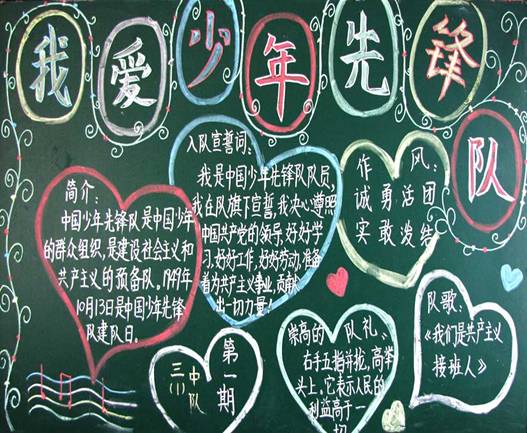 我爱少年先锋队
简介:
中国少年先锋队是中国少年
的群众组织,是建设社会主义和
共产主义的预备队,1949年
10月13日是中国少年先锋
队建队日。
入队宣誓词:
我是中国少年先锋队队员,
我在队旗下宣誓,我决心遵照
中国共产党的领导,好好学
习,好好工作,好好劳动,准备
着为共产主义事业,贡献
出一切力量!
作风:
诚勇活团
实敢泼结
队歌:
《我们是共产主义
接班人》
崇高的队礼、
右手五指并拢,高举
头上,它表示人民的
利益高于一
切
第一期
三(1)中队